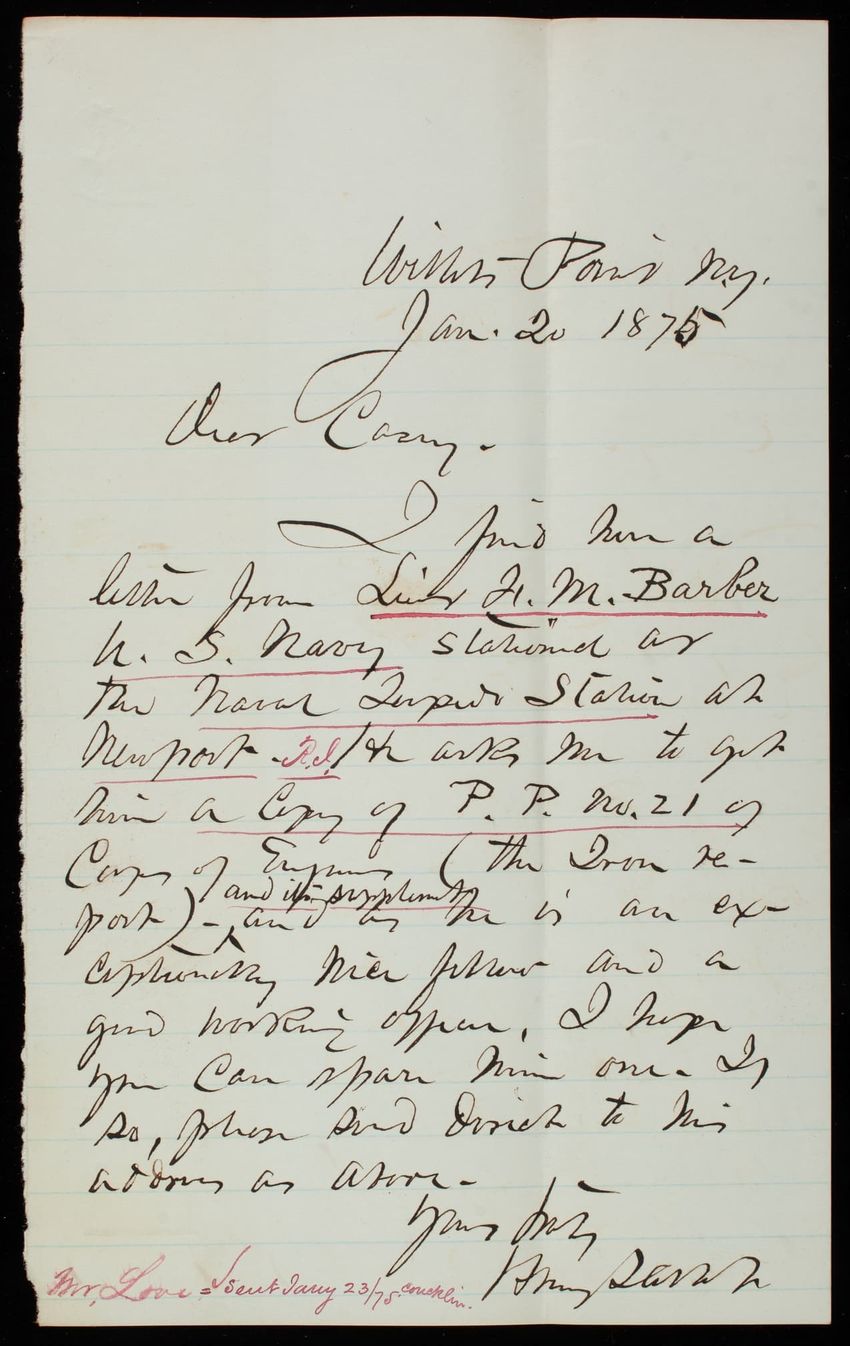 Willets Point N.Y.
Jan. 20 1875
Dear Casey.
I find here a
letter from Lieut F. M. Barber
U. S. Navy stationed at
the Naval Torpedo Station at
Newport R.I. He asks me to get
him a Copy of P. P. No. 21 of
Corps of Engineers (the Iron re-
and its supplements
port) - and as he is an ex-
ceptionally nice fellow and a
good working officer, I hope
you can spare him one. If
so, please send direct to his
address as above.
Yours truly
Henry L Abbot
Mr. Love = sent Jany 23/75 Conklin.